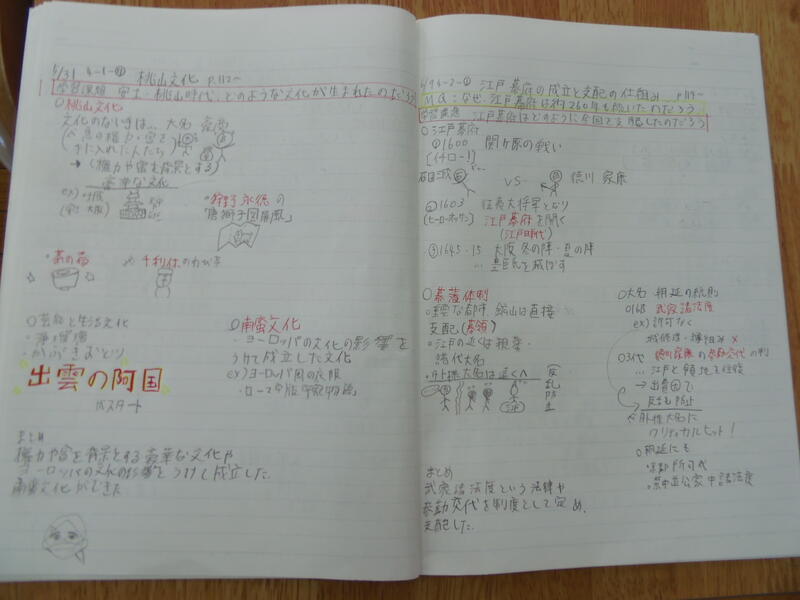 5/31 4-1-④ 桃山文化 p.112~
学習課題 安土・桃山時代、どのような文化が生まれたのだろう
○桃山文化
文化のない手は… 大名 豪商
→(権力や富を背景とする)
豪華な文化
ex)城
大阪
・狩野永徳の
「唐獅子図屏風」
・茶の湯
千利休のわび茶
○芸能と生活文化
・浄瑠璃
・かぶきおどり
出雲の阿国
がスタート
○南蛮文化
・ヨーロッパの文化の影響を
うけて成立した文化
ex)ヨーロッパ風の衣服
まとめ
権力や富を背景とする豪華な文化や
ヨーロッパの文化の影響をうけて成立した
南蛮文化ができた
6/9 4-2-① 江戸幕府の成立と支配の仕組み p.114~
MQ:なぜ、江戸幕府は約260年も続いたのだろう
学習課題 江戸幕府はどのように全国を支配したのだろう
○江戸幕府
①1600 関ヶ原の戦い
石田三成 VS 徳川家康
②1603 征夷大将軍となり
江戸幕府を開く
(江戸時代)
③1645・15 大阪冬の陣・夏の陣
… 豊臣氏を滅ぼす
○幕藩体制
・重要な都市、鉱山は直接
支配(幕領)
・江戸の近くは親藩・
譜代大名
・外様大名は遠くへ
(反乱防止)
○大名・朝廷の統制
武家諸法度
ex)許可なく
城修理・婚姻 ×
○3代 徳川家康の参勤交代の制
…江戸と領地を往復
→出費図で
反乱も防止
外様大名に
クリティカルヒット!
○朝廷にも
・京都所司代
・禁中並公家中諸法度
まとめ
武家諸法度という法律や
参勤交代を制度として定め、
支配した。